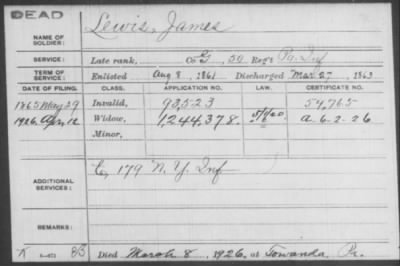 DEAD
NAME OF SOLDIER: Lewis, James
SERVICE: Late rank, Co G, 50 Reg't Pa. Inf
TERM OF SERVICE: Enlisted Aug 8, 1861 Discharged Mar 27, 1863
DATE OF FILING. CLASS. APPLICATION NO. LAW. CERTIFICATE NO.
1865 May 29 Invalid, 93,523 54,765
1926 Apr 12 Widow, 1,244,378. a-6-2-26
Minor,
ADDITIONAL SERVICES: C, 179 N.Y. Inf
REMARKS:
Died March 8, 1926, at Towanda, Pa.